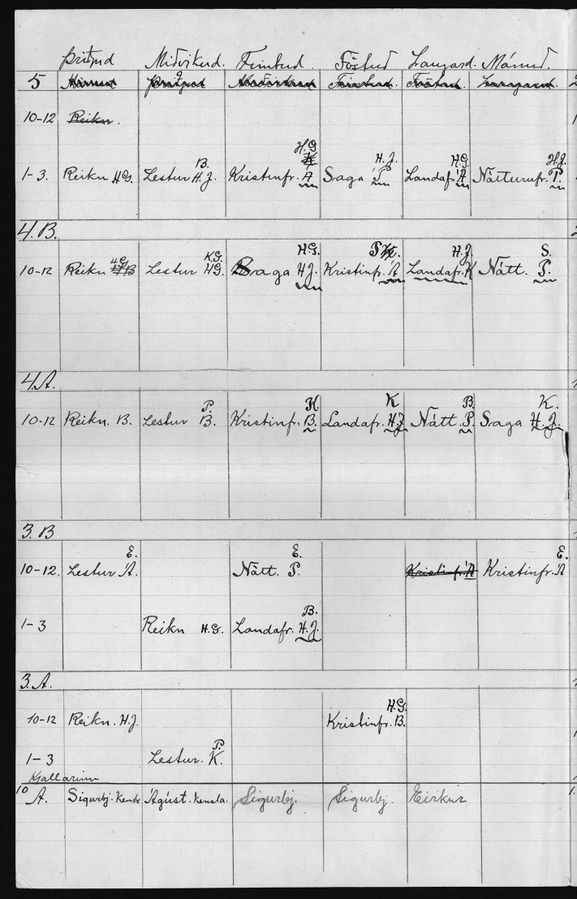 Þriðjud Miðvikud. Fimtud. Föstud Laugard. Mánud.
5
10-12 Reikn.
H.G. H.J. H.G. H.J.
B.
1-3. Reikn H.G. Lestur H.J. Kristinfr. A Saga P Landafr. Á Nátturufr. P.
4.B.
H.G. K.G. H.G. P. H.J. S.
10-12 Reikn Lestur H.G. Saga H.J. Kristinfr. A Landafr. K Nátt. P.
4A.
P. H. K B. K.
10-12 Reikn. B. Lestur B. Kristinf. B. Landafr. H.J. Nátt. P. Saga H.J.
3.B
E. E. E.
10-12. Lestur A. Nátt. P. Kristinfr. A Kristinfr. A
B.
1-3 Reikn H.G. Landafr. H.J.
3.A.
H.G.
10-12 Reikn. H.J. Kristinfr. B.
P
1-3 Lestur. K.
Kjallarinn
10 A. Sigurbj. Ágúst. Kensla. Sigurbj. Sigurbj. Eirikur